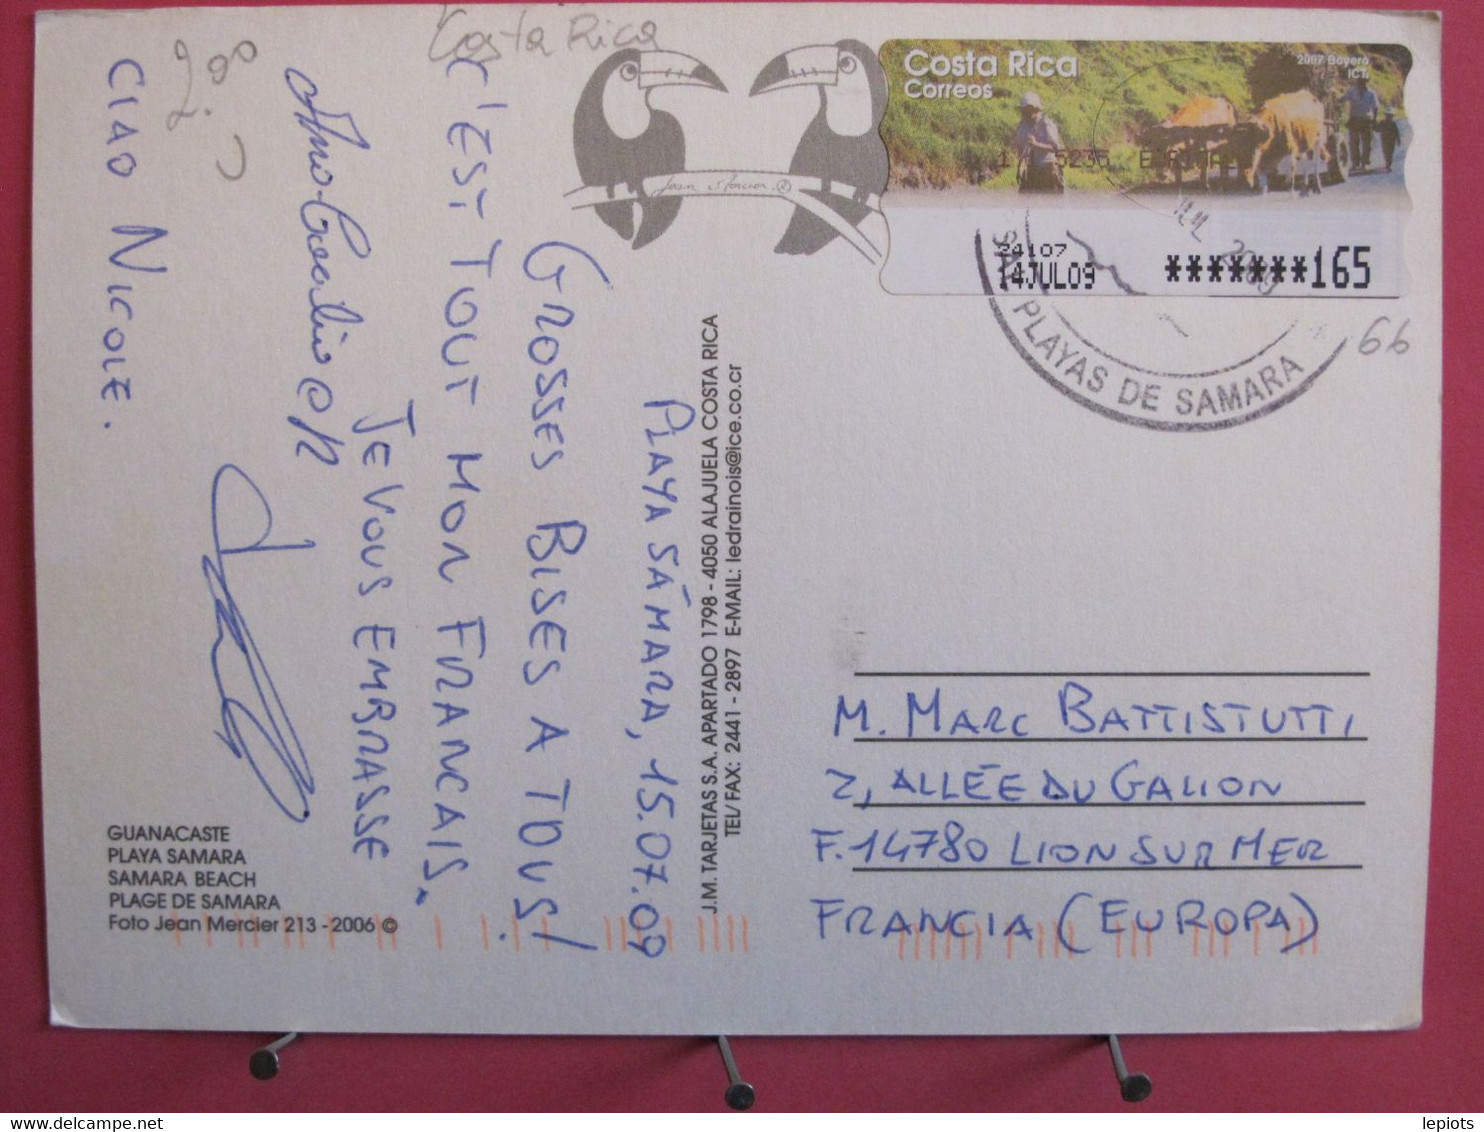 Costa Rica
Playa Sámara, 15.07.09
GROSSES BISES A TOUS!
C'EST TOUT MON FRANCAIS.
JE VOUS EMBRASSE
CIAO NICOLE.
GUANACASTE
PLAYA SAMARA
SAMARA BEACH
PLAGE DE SAMARA
Foto Jean Mercier 213 - 2006 ©
J.M. TARJETAS S.A. APARTADO 1798 - 4050 ALAJUELA COSTA RICA
TEL/ FAX: 2441 - 2897 E-MAIL: ledrainois@ice.co.cr
Jean Mercier
Costa Rica
Correos
2007 Boyero
ICT.
24107
14JUL09
*******165
JUL 2009
PLAYAS DE SAMARA
66
M. MARC BATTISTUTTI
2, ALLÉE DU GALION
F.14780 LION SUR MER
FRANCIA (EUROPA)
lepiots